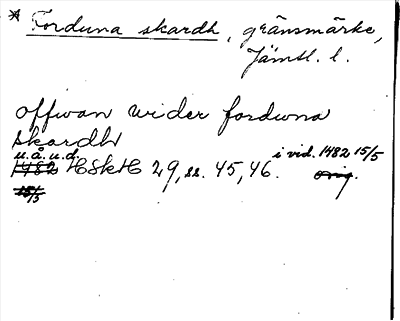 * Forduna skardh, gränsmärke,
Jämtl. l.
offwan wider fordwna
skardh
u.å.u.d. i vid. 1482 15/5
1482 HSkH 29, ss. 45, 46. orig.
15/5